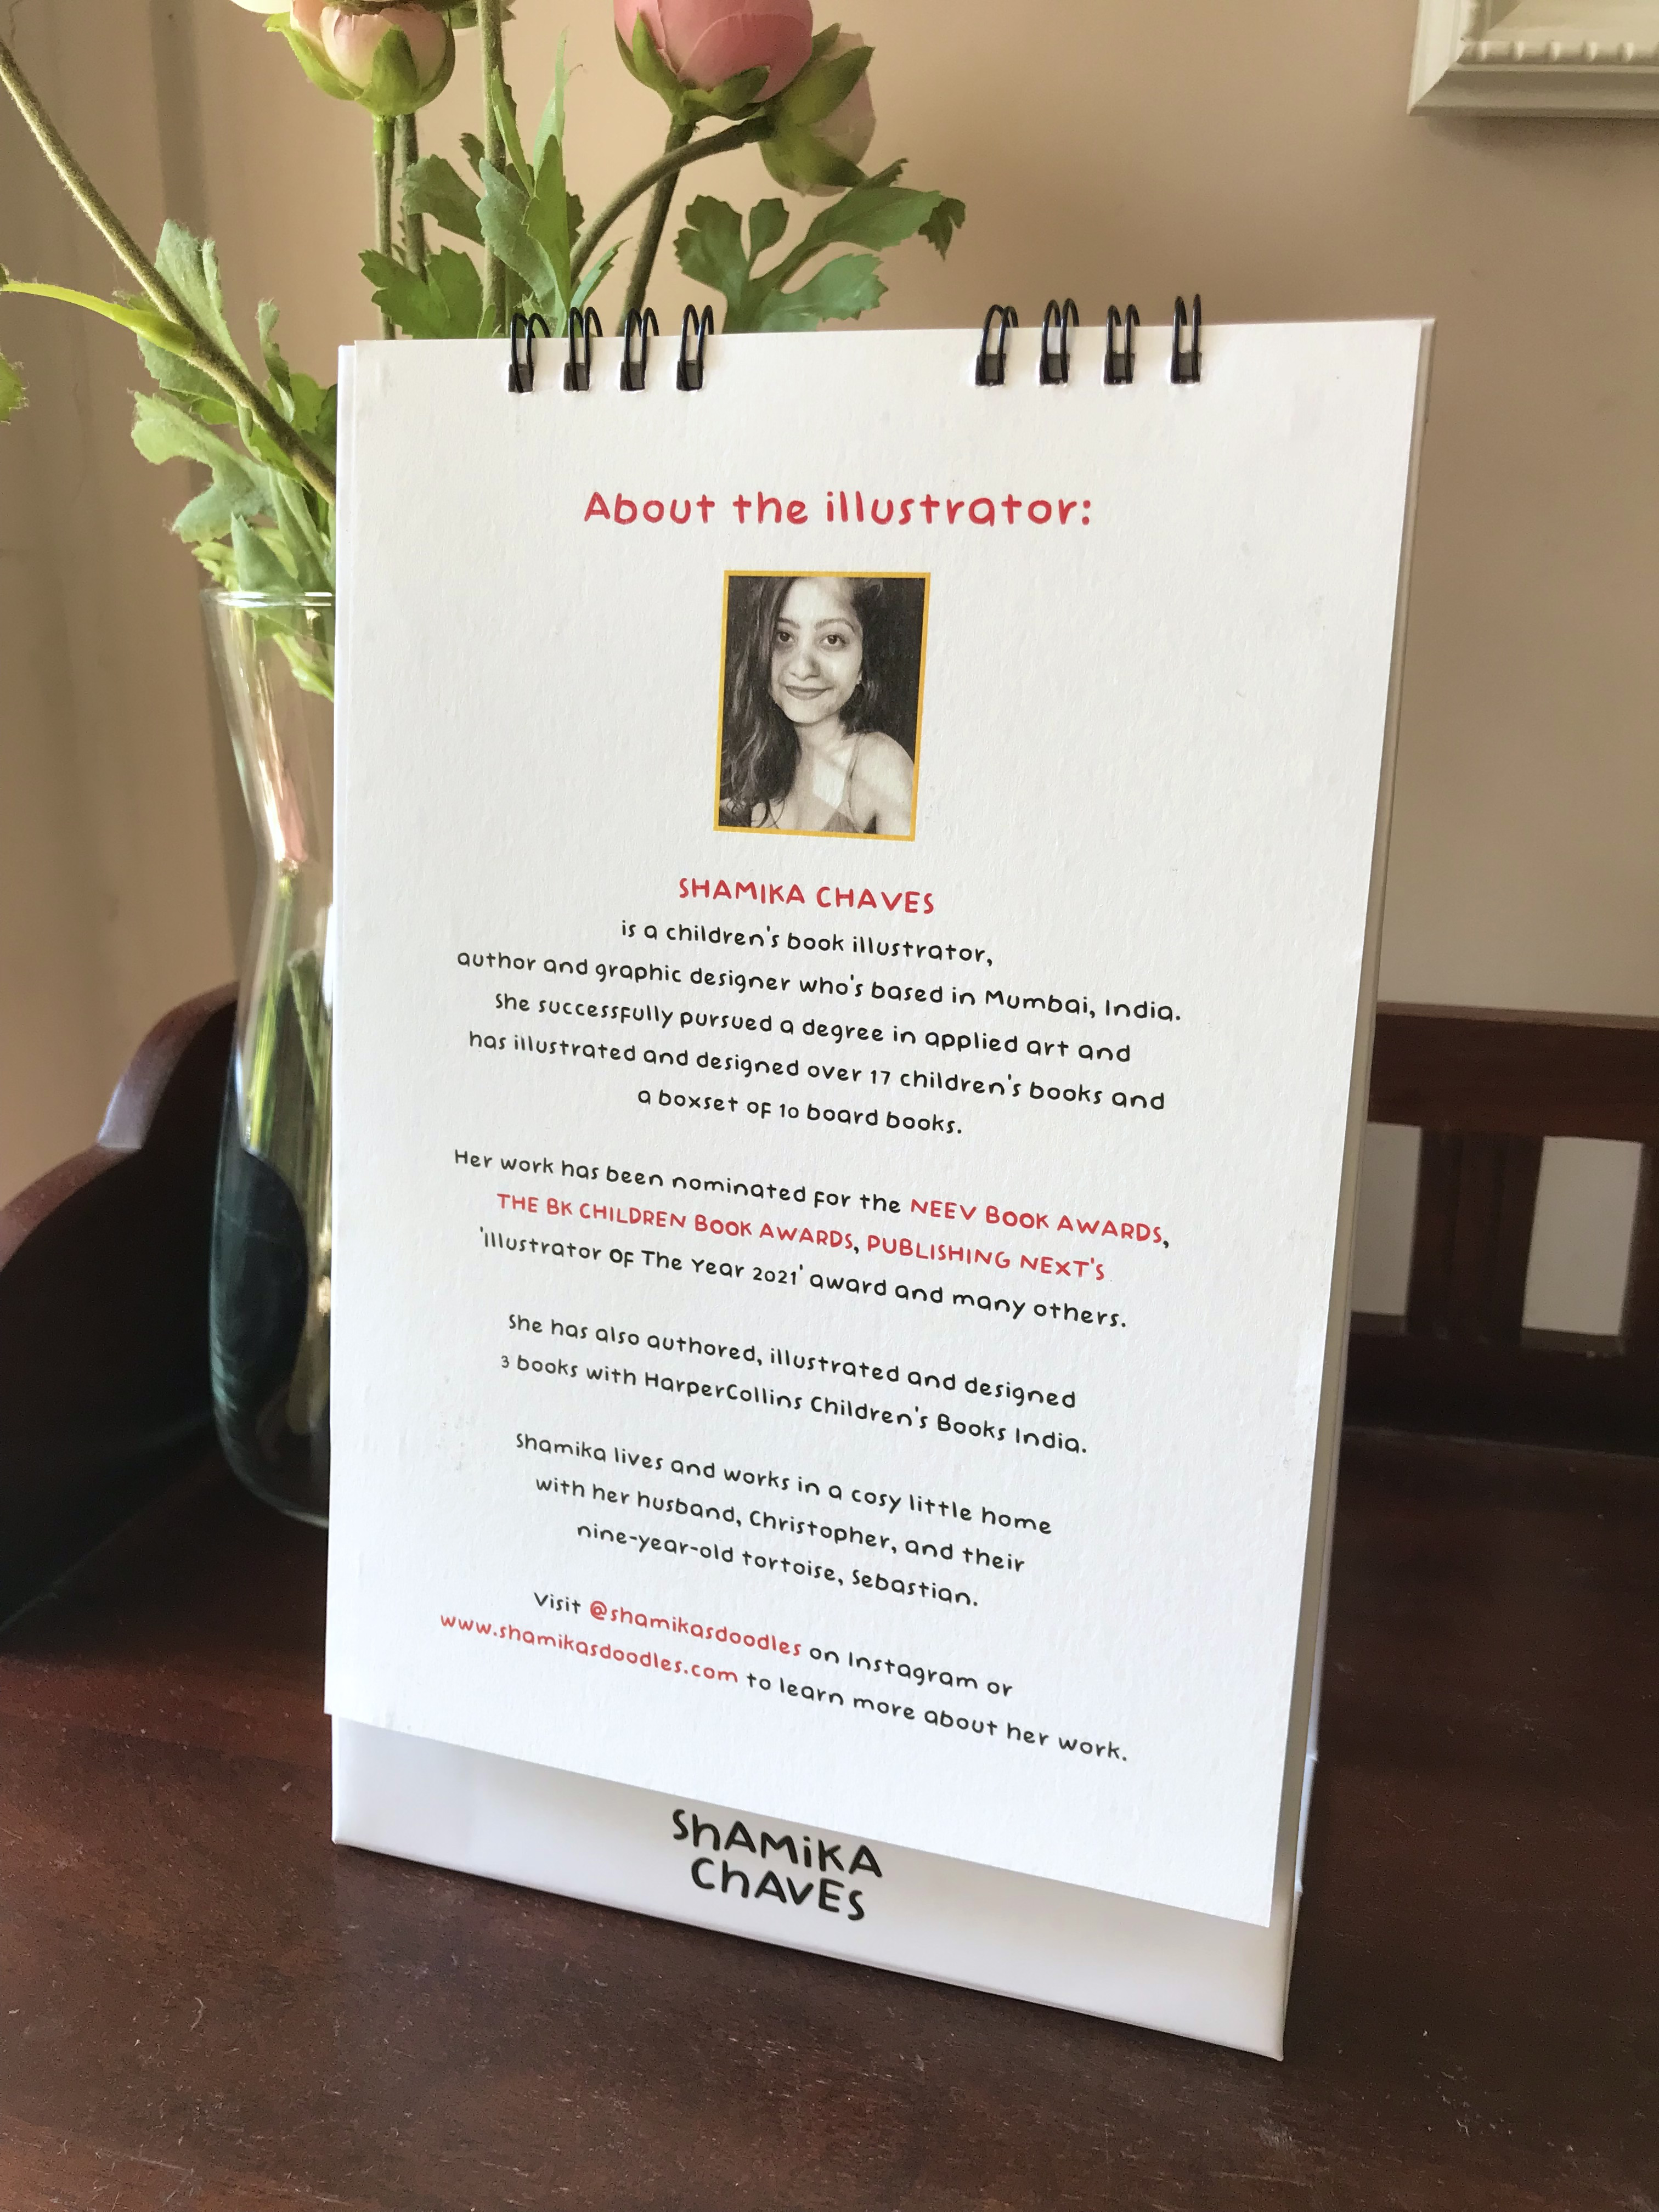 About the illustrator:
SHAMIKA CHAVES
is a children's book illustrator,
author and graphic designer who's based in Mumbai, India.
She successfully pursued a degree in applied art and
has illustrated and designed over 17 children's books and
a boxset of 10 board books.
Her work has been nominated for the NEEV BOOK AWARDS,
THE BK CHILDREN BOOK AWARDS, PUBLISHING NEXT'S
'Illustrator Of The Year 2021' award and many others.
She has also authored, illustrated and designed
3 books with HarperCollins Children's Books India.
Shamika lives and works in a cosy little home
with her husband, Christopher, and their
nine-year-old tortoise, Sebastian.
Visit @shamikasdoodles on Instagram or
www.shamikasdoodles.com to learn more about her work.
ShAMiKA
ChAVES